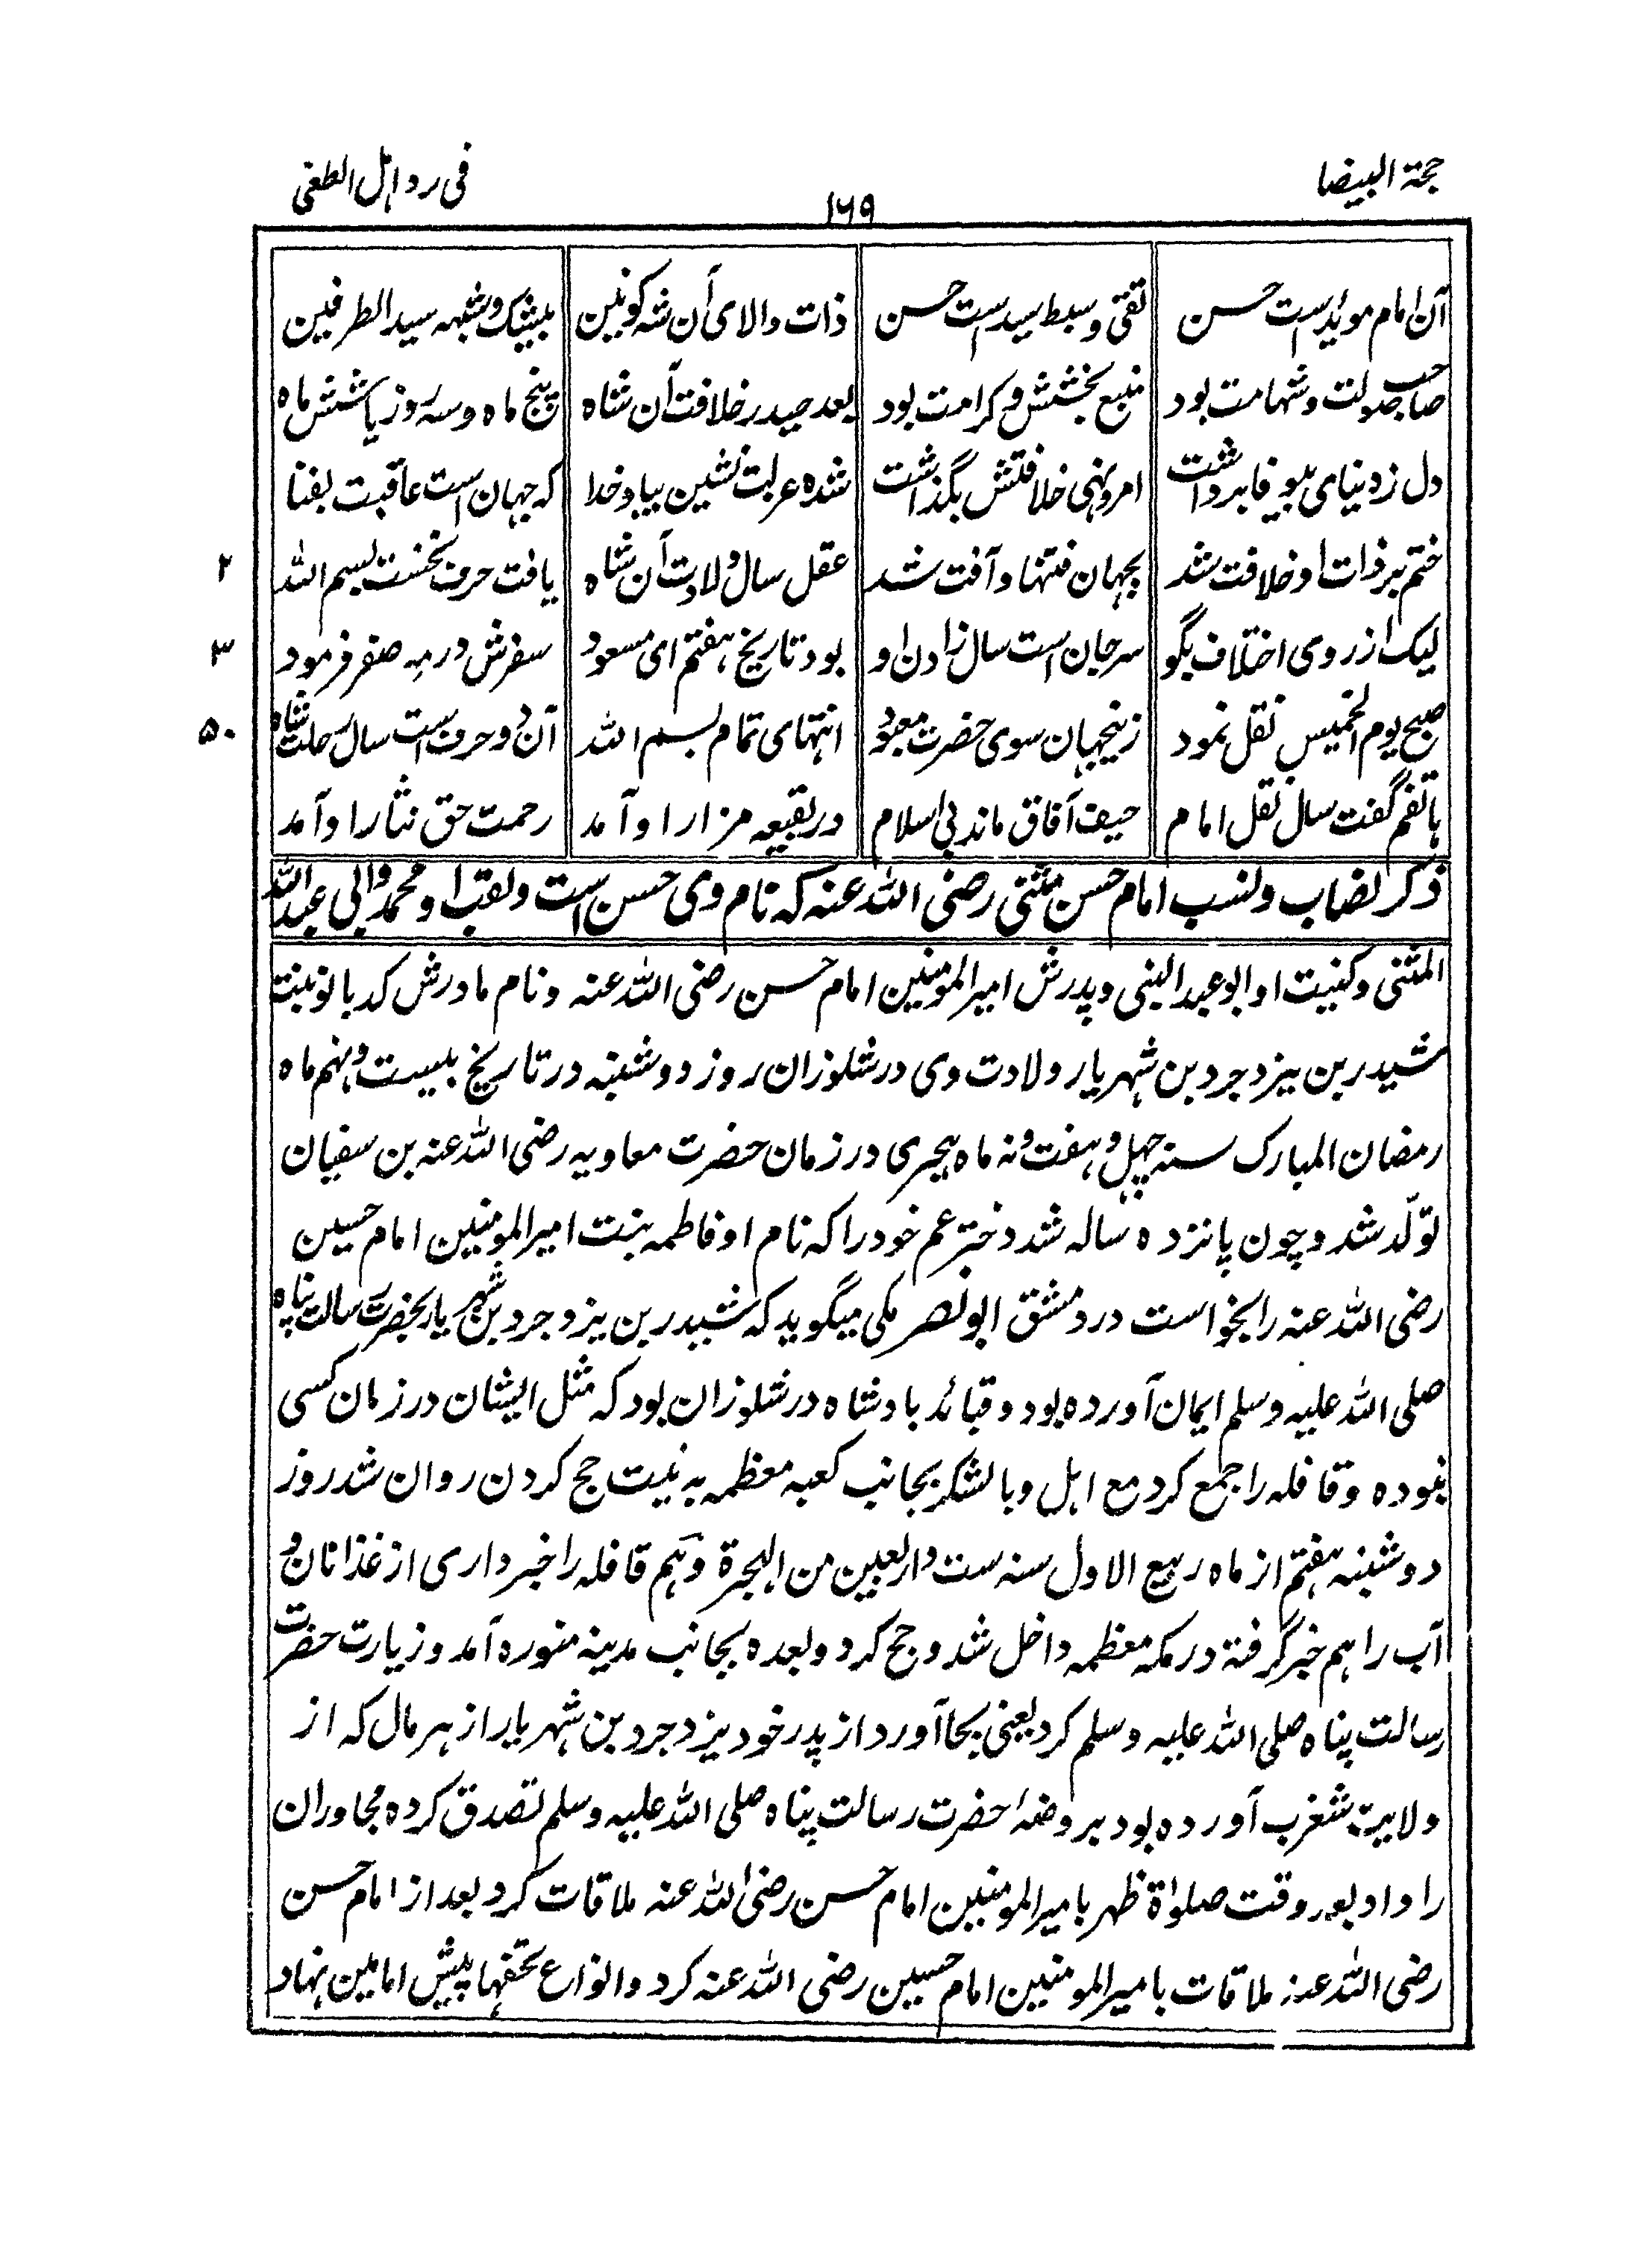 حجة البیضا
۱۶۹
فی رد اہل الطغی
آن امام موئد است حسن تقی و سبط سید است حسن ذات والای آن شہ کونین بیشک و شبہہ سید الطرفین
صاحب صولت و شہامت بود منبع بخشش و کرامت بود بعد حیدر خلافت آن شاہ پنج ماہ و سہ روز یا شش ماہ
دل ز دنیای بیوفا برداشت امر و نہی خلافتش بگذاشت شدہ عزلت نشین بیاد خدا کہ جہان است عاقبت بفنا
ختم بر ذات او خلافت شد بجہان فتنہا و آفت شد عقل سال ولادت آن شاہ یافت حرف نخست بسم اللہ ۲
لیک از روی اختلاف بگو سر جان است سال زادن او بود تاریخ ہفتم ای مسعود سفرش در مہ صفر فرمود ۳
صبح یوم الخمیس نقل نمود زینجہان سوی حضرت معبود انتہای تمام بسم اللہ آن دو حرف است سال رحلت شاہ ۵۰
ہاتفم گفت سال نقل امام حیف آفاق ماند بی اسلام در بقیعہ مزار او آمد رحمت حق نثار او آمد
ذکر نصاب و نسب امام حسن مثنی رضی اللہ عنہ کہ نام وی حسن است و لقب او محمد والی عبد اللہ
المثنی و کنیت او ابو عبد النبی و پدرش امیر المومنین امام حسن رضی اللہ عنہ و نام مادرش کد بانو بنت
شیدر بن یزد جرد بن شہریار ولادت وی در شلوزان روز دوشنبہ در تاریخ بیست و نہم ماہ
رمضان المبارک سنہ چہل و ہفت و نہ ماہ ہجری در زمان حضرت معاویہ رضی اللہ عنہ بن سفیان
تولّد شد و چون پانزدہ سالہ شد دختر عم خود را کہ نام او فاطمہ بنت امیر المومنین امام حسین
رضی اللہ عنہ را بخواست در دمشق ابو نصر مکی میگوید کہ شیدر بن یزد جرد بن شہریار بحضرت رسالت پناہ
صلی اللہ علیہ وسلم ایمان آوردہ بود و قبائد بادشاہ در شلوزان بود کہ مثل ایشان در زمان کسی
نبودہ و قافلہ را جمع کرد مع اہل و با لشکر بجانب کعبہ معظمہ بہ نیت حج کردن روان شد روز
دوشنبہ ہفتم از ماہ ربیع الاول سنہ ست و اربعین من الہجرة و ہم قافلہ را خبرداری از غذا نان و
آب را ہم خبر گرفتہ در مکہ معظمہ داخل شد و حج کرد و بعدہ بجانب مدینہ منورہ آمد و زیارت حضرت
رسالت پناہ صلی اللہ علیہ وسلم کرد یعنی بجا آورد از پدر خود یزد جرد بن شہریار از ہر مال کہ از
ولایت شغرب آوردہ بود بر وضۂ حضرت رسالت پناہ صلی اللہ علیہ وسلم تصدق کردہ مجاوران
را داد بعد وقت صلوٰة ظہر با میر المومنین امام حسن رضی اللہ عنہ ملاقات کرد بعد از امام حسن
رضی اللہ عنہ ملاقات با میر المومنین امام حسین رضی اللہ عنہ کرد و انواع تحفہا پیش امامین نہاد